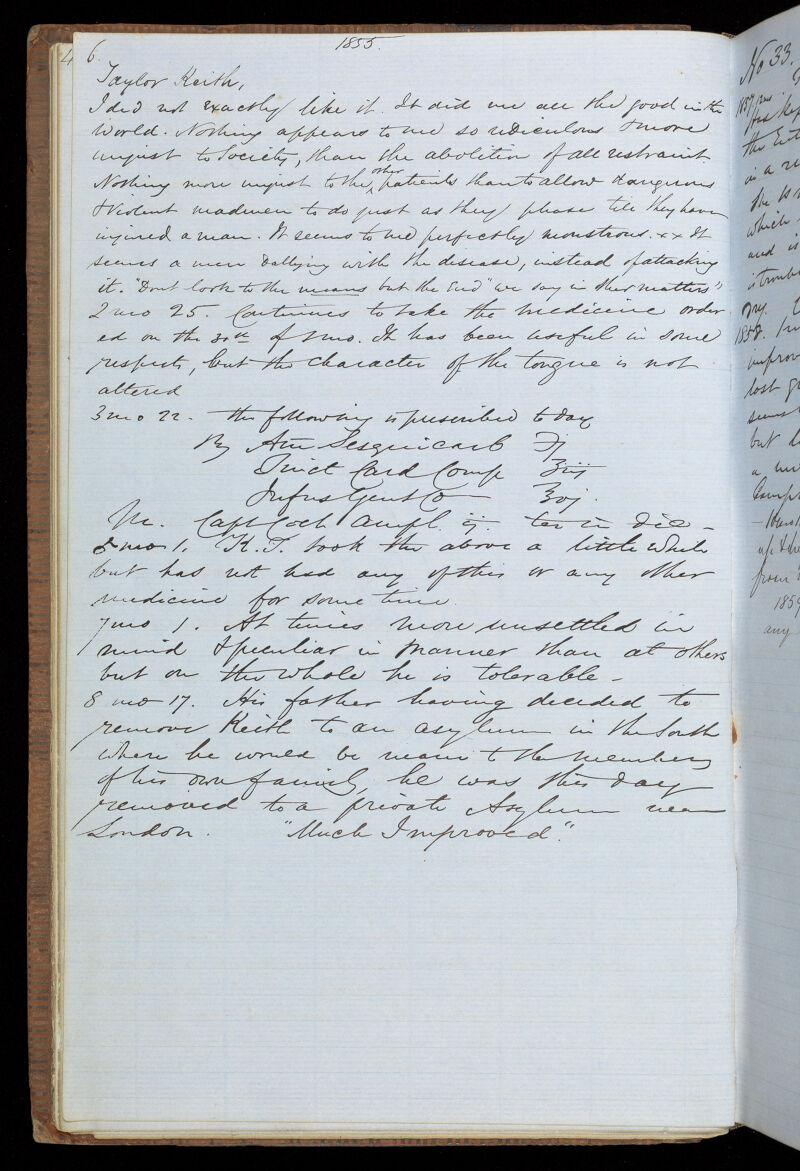 6.
1855.
Taylor Keith,
I did not exactly like it. It did me all the good in the
World. Nothing appears to me so ridiculous & more
unjust to Society, than the abolition of all restraint.
Nothing more unjust to the other patients than to allow dangerous
& violent madmen to do just as they please till they have
injured a man. It seems to me perfectly monstrous. x x It
seems a mere dallying with the disease, instead of attacking
it. "Dont look to the means but the End" we say in other matters"
2 mo 25. Continues to take the medicine order
ed on the 30th of 1 mo. It has been useful in some
respects, but the character of the tongue is not
altered
3 mo 22. the following is prescribed to day
Rx Am Sesquicarb ʒj
Tinct Card Comp ʒiij
Infus Gent Co ʒvj.
M. Capt Coch ampl. ij. ter in die -
5 mo 1. K.T. took the above a little while
but has not had any of this or any other
medicine for some time.
7 mo 1. At times more unsettled in
mind & peculiar in manner than at others
but on the whole he is tolerable -
8 mo 17. His father having decided to
remove Keith to an asylum in the South
where he would be nearer to the members
of his own family, he was this day
removed to a private Asylum near
London. "Much Improved."
No 33.
in a
she is
which
and is
1858.
lost
but
from
1859
any